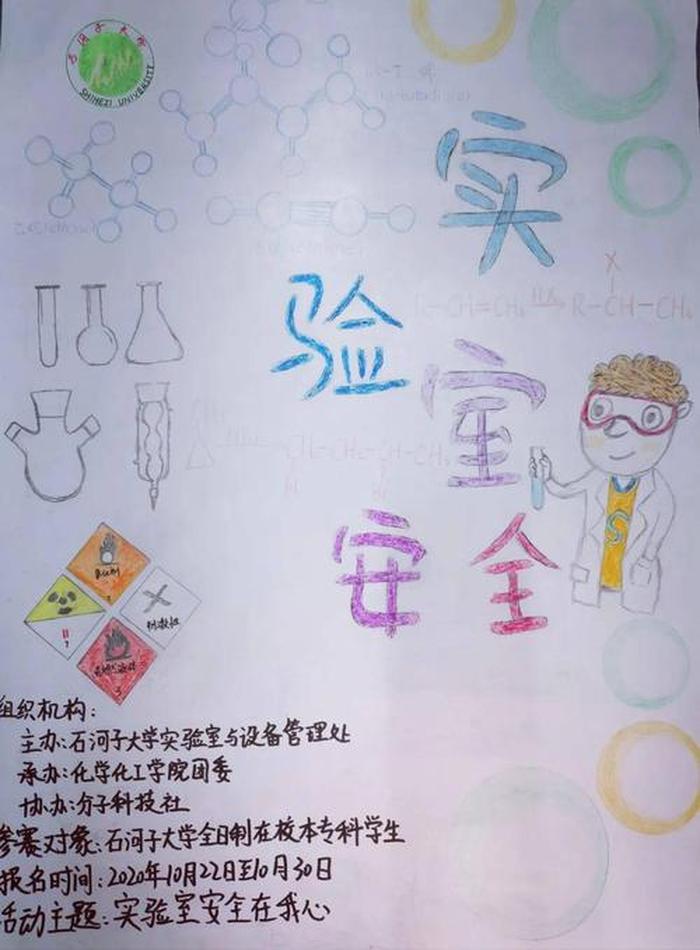 石河子大学
SHIHEZI UNIVERSITY
实
验
R-CH=CH₂ HX→ R-CH-CH₃
X
室
安全
氧化剂
刺激性
II
7
易燃液体
3
组织机构:
主办:石河子大学实验室与设备管理处
承办:化学化工学院团委
协办:分子科技社
参赛对象:石河子大学全日制在校本专科学生
报名时间:2020年10月22日至10月30日
活动主题:实验室安全在我心